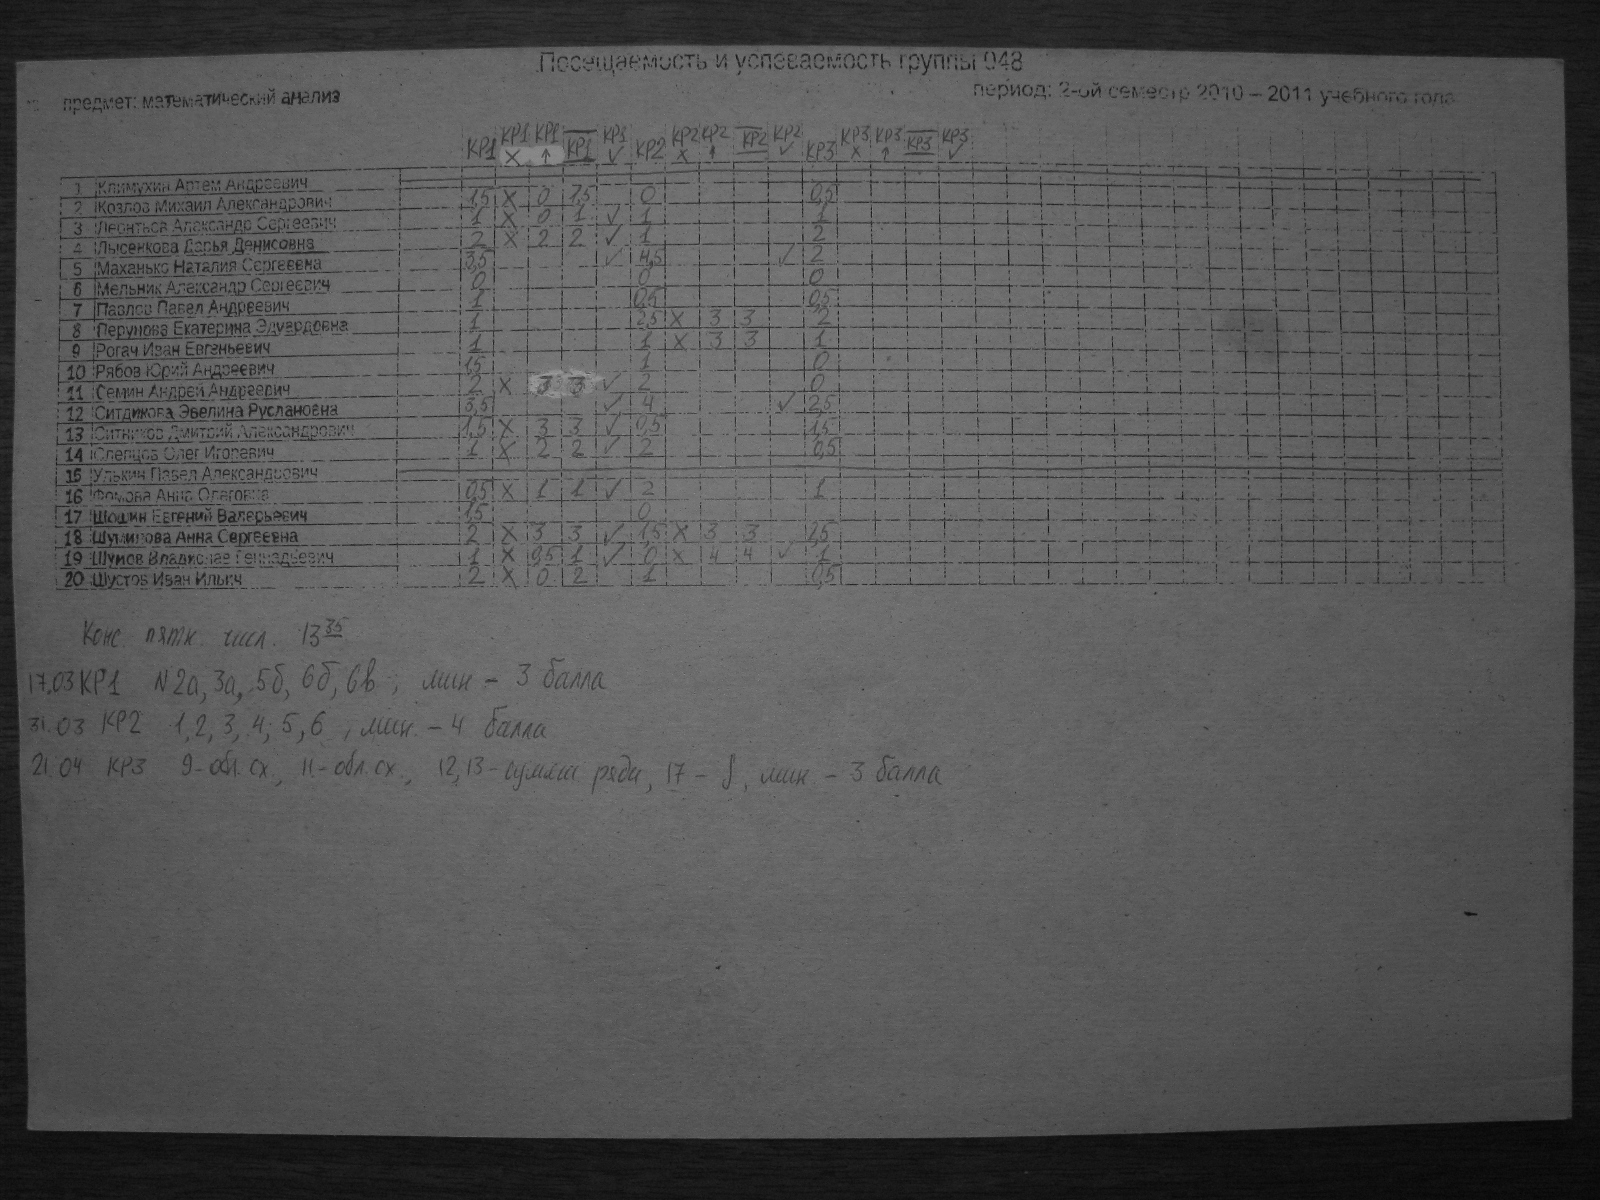 Посещаемость и успеваемость группы 048
предмет: математический анализ период: 2-ой семестр 2010 – 2011 учебного года
КР1 КР1 × КР1 ↑ КР1 КР1 ✓ КР2 КР2 × КР2 ↑ КР2 КР2 ✓ КР3 КР3 × КР3 ↑ КР3 КР3 ✓
1 Климухин Артем Андреевич
2 Козлов Михаил Александрович 1,5 × 0 1,5 0 0,5
3 Леонтьев Александр Сергеевич 1 × 0 1 ✓ 1 1
4 Лысенкова Дарья Денисовна 2 × 2 2 ✓ 1 2
5 Маханько Наталия Сергеевна 3,5 ✓ 4,5 ✓ 2
6 Мельник Александр Сергеевич 0 0 0
7 Павлов Павел Андреевич 1 0,5 0,5
8 Перунова Екатерина Эдуардовна 1 2,5 × 3 3 2
9 Рогач Иван Евгеньевич 1 1 × 3 3 1
10 Рябов Юрий Андреевич 1,5 1 0
11 Семин Андрей Андреевич 2 × 3 3 ✓ 2 0
12 Ситдикова Эвелина Руслановна 3,5 ✓ 4 ✓ 2,5
13 Ситников Дмитрий Александрович 1,5 × 3 3 ✓ 0,5 1,5
14 Слепцов Олег Игоревич 1 × 2 2 ✓ 2 0,5
15 Улькин Павел Александрович
16 Фомова Анна Олеговна 0,5 × 1 1 ✓ 2 1
17 Шошин Евгений Валерьевич 1,5 0
18 Шумилова Анна Сергеевна 2 × 3 3 ✓ 1,5 × 3 3 2,5
19 Шумов Владислав Геннадьевич 1 × 0,5 1 ✓ 0 × 4 4 ✓ 1
20 Шустов Иван Ильич 2 × 0 2 1 0,5
Конс. пятн. числ. 13 35
17.03 КР1 N 2а, 3а, 5б, 6б, 6в, мин – 3 балла
31.03 КР2 1, 2, 3, 4, 5, 6, мин. – 4 балла
21.04 КР3 9-обл. сх., 11-обл. сх., 12,13-сумма ряда, 17 – ∫, мин – 3 балла